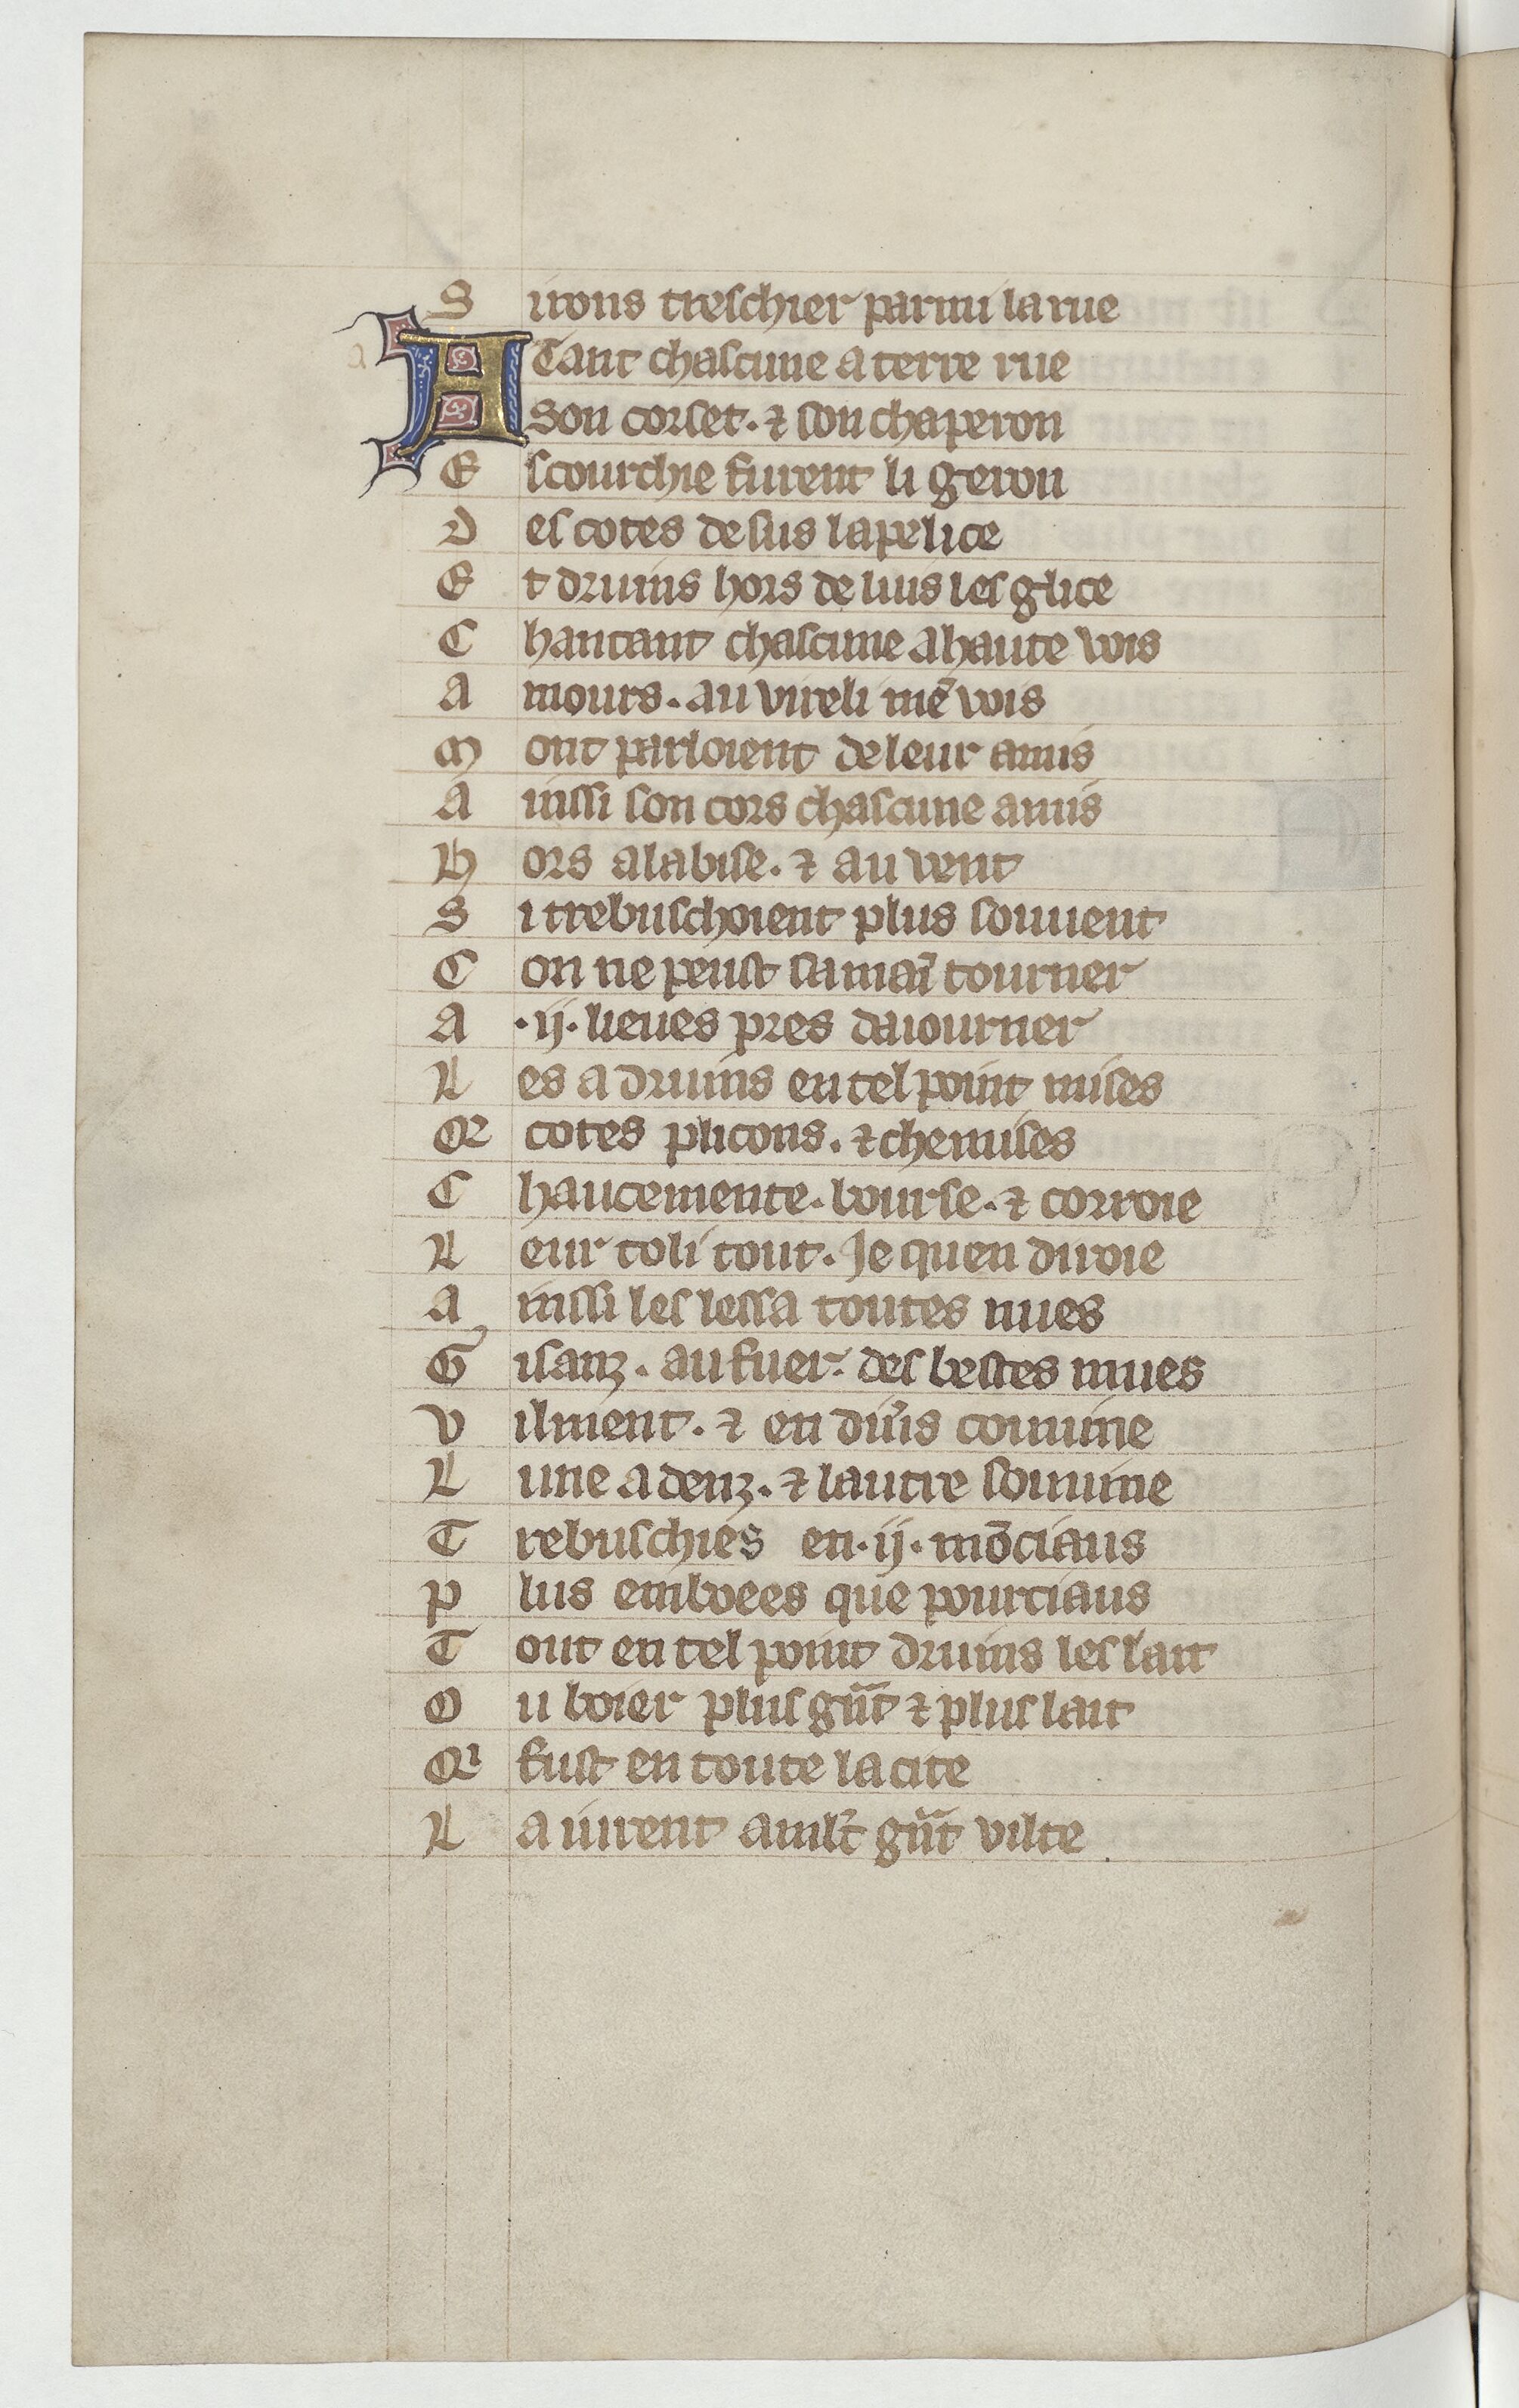 S irons treschier parmi la rue
A Tant chascune a terre rue
Son corset. ⁊ son chaperon
E scourchie furent li geron
D es cotes desus la pelice
E t druins hors de luis les glice
C hantant chascune a haute vois
A mours. au vireli mē vois
M out parloient de leur amis
A inssi son cors chascune a mis
H ors a la bise. ⁊ au vent
S i trebuschoient plus souuent
C on ne peust sa maī tourner
A .ij. lieues pres daiourner
L es a druins en tel point mises
Q̃ cotes plicons. ⁊ chemises
C haucemente. bourse. ⁊ corroie
L eur toli tout. Je quen diroie
A inssi les lessa toutes nues
G isanz. au fuer. des bestes mues
V ilment. ⁊ en diu's comune
L une a denz. ⁊ lautre souuine
T rebuschies en .ij. mōciaus
P lus emboees que pourciaus
T out en tel point druins les lait
O u boier plus gñt ⁊ plus lait
Qi fust en toute la cite
L a iurent a mlt gñt vilte